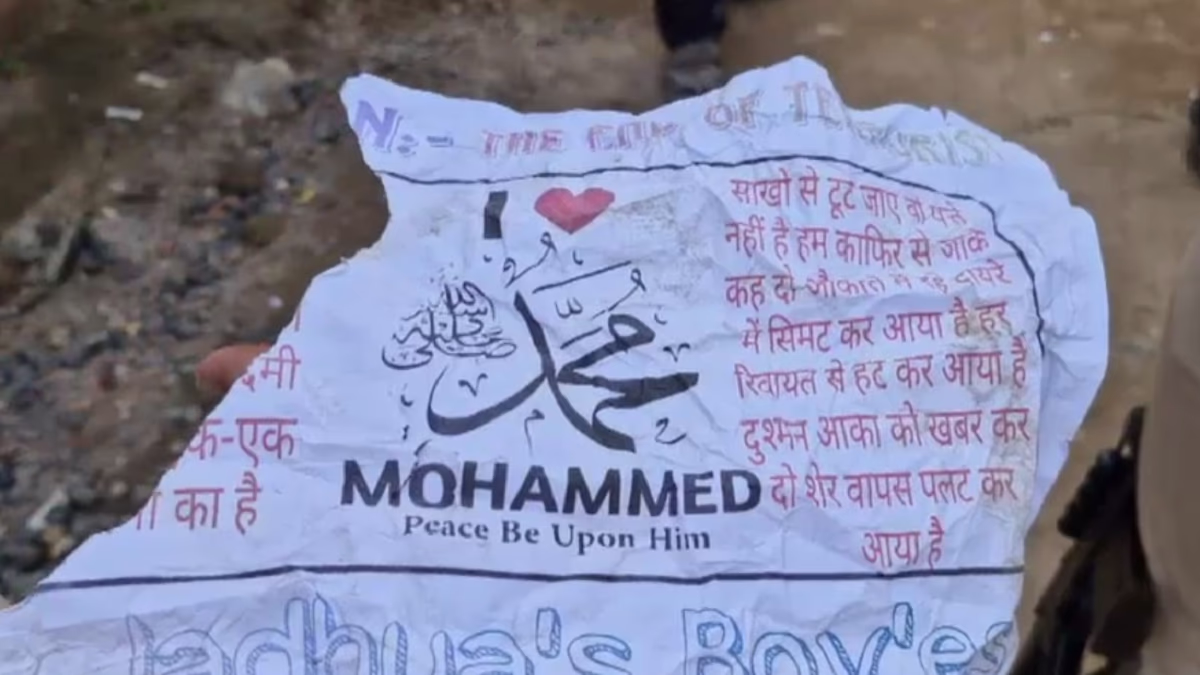 N:- THE OF
I ❤
محمد
صلى الله عليه
MOHAMMED
Peace Be Upon Him
साखो से टूट जाए वो पत्ते
नहीं है हम काफिर से जाके
कह दो औकात में रहे दायरे
में सिमट कर आया है हर
रिवायत से हट कर आया है
दुश्मन आका को खबर कर
दो शेर वापस पलट कर
आया है
दमी
क-एक
का है
Jadhua's Boy'es